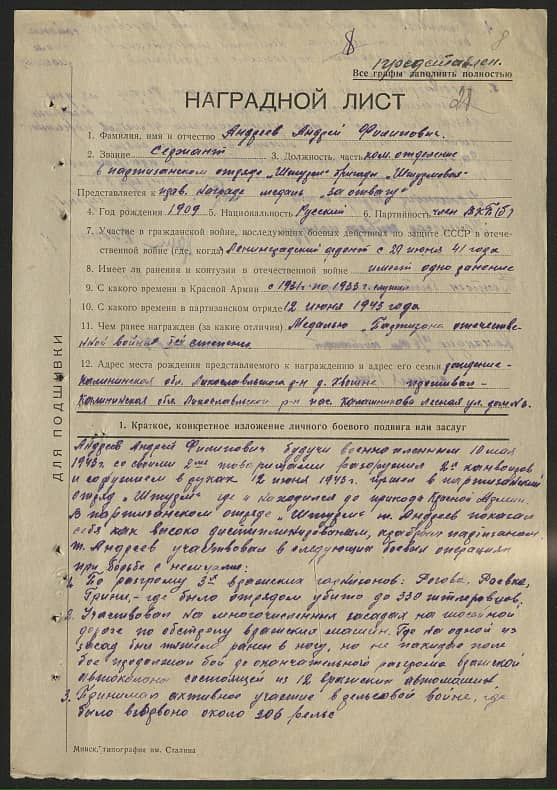 8
8
представлен.
Все графы заполнять полностью
21
НАГРАДНОЙ ЛИСТ
1. Фамилия, имя и отчество Андреев Андрей Филипович.
2. Звание Сержант 3. Должность, часть ком. отделения
в партизанском отряде „Штурм“ бригады „Штурмовая“
Представляется к прав. награде медаль „За отвагу“
4. Год рождения 1909 5. Национальность Русский 6. Партийность член ВКП(б)
7. Участие в гражданской войне, последующих боевых действиях по защите СССР в отече-
ственной войне (где, когда) Ленинградский фронт с 27 июня 41 года
8. Имеет ли ранения и контузии в отечественной войне имеет одно ранение
9. С какого времени в Красной Армии с 1931 г. по 1933 г. служил
10. С какого времени в партизанском отряде 12 июня 1943 года
11. Чем ранее награжден (за какие отличия) Медалью „Партизана отечестве-
нной войны степени
12. Адрес места рождения представляемого к награждению и адрес его семьи рождение-
Калининская обл. Лихославльского р-н д. проживал-
Калининская обл. Лихославльский р-н пос. Калашниково Лесная ул. дом №
1. Краткое, конкретное изложение личного боевого подвига или заслуг
Андреев Андрей Филипович будучи военнопленным 10 мая
1943 г. со своими 2мя товарищами разоружил 2х канвоиров
и с оружием в руках 12 июня 1943 г. пришел в партизанский
отряд „Штурм“ где и находился до прихода Красной Армии.
В партизанском отряде „Штурм“ т. Андреев показал
себя как высоко дисциплинированным, храбрым партизаном.
т. Андреев участвовал в следующих боевых операциях
при борьбе с немцами:
1. По разгрому 3х вражеских гарнизонов: Рогова, Роевка,
Грини, - где было отрядом убито до 330 гитлеровцев;
2. Участвовал на многочисленных засадах на шоссейной
дороге по обстрелу вражеских машин. Где на одной из
засад был тяжело ранен в ногу, но не покидая поле
боя продолжал бой до окончательного разгрома вражеской
автоколоны состоящей из 12 вражеских автомашин
3. Принимал активное участие в рельсовой войне, где
было взорвано около 206 рельс
ДЛЯ ПОДШИВКИ
Минск, типография им. Сталина